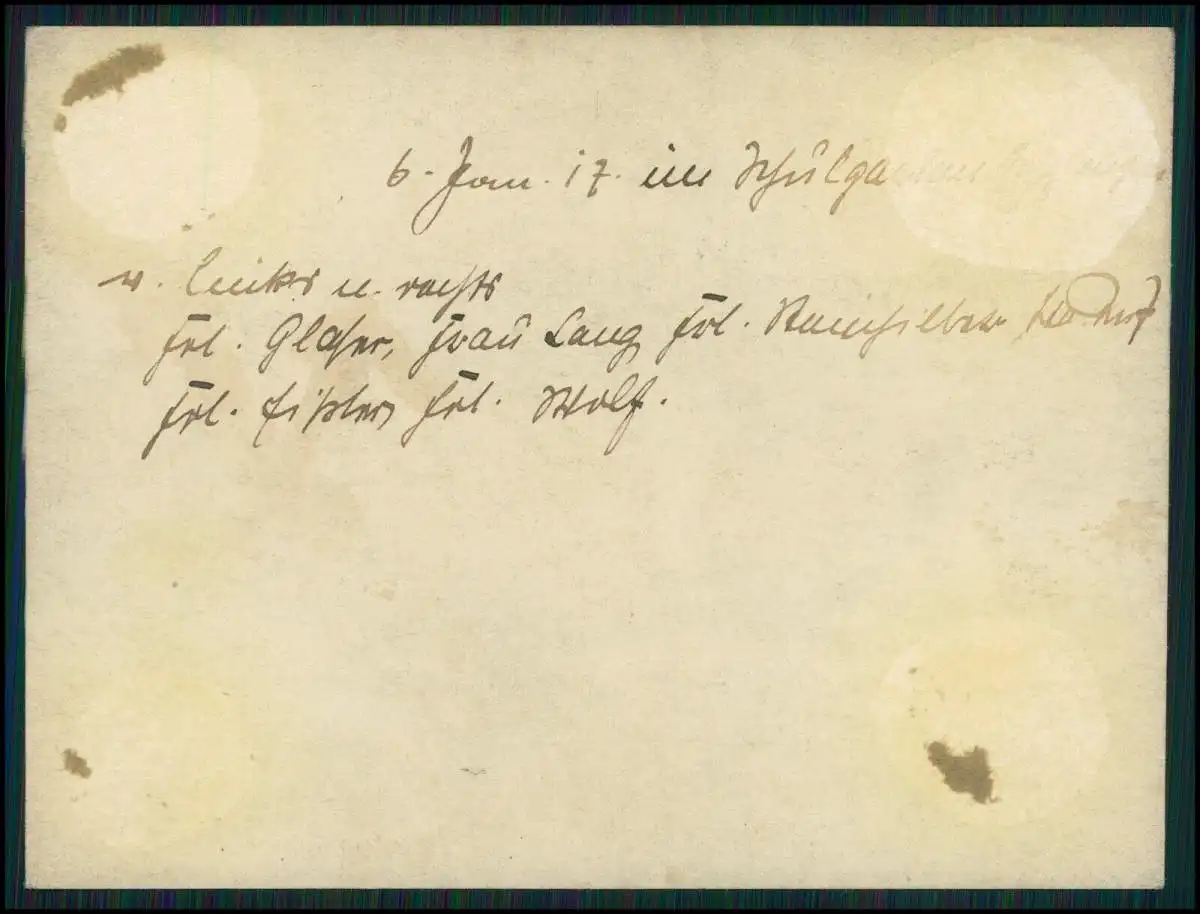 6. Jan. 17. im Schulgarten
v. links n. rechts
Frl. Glaser, Frau Lang Frl.
Frl. Eißler, Frl. Wolf.